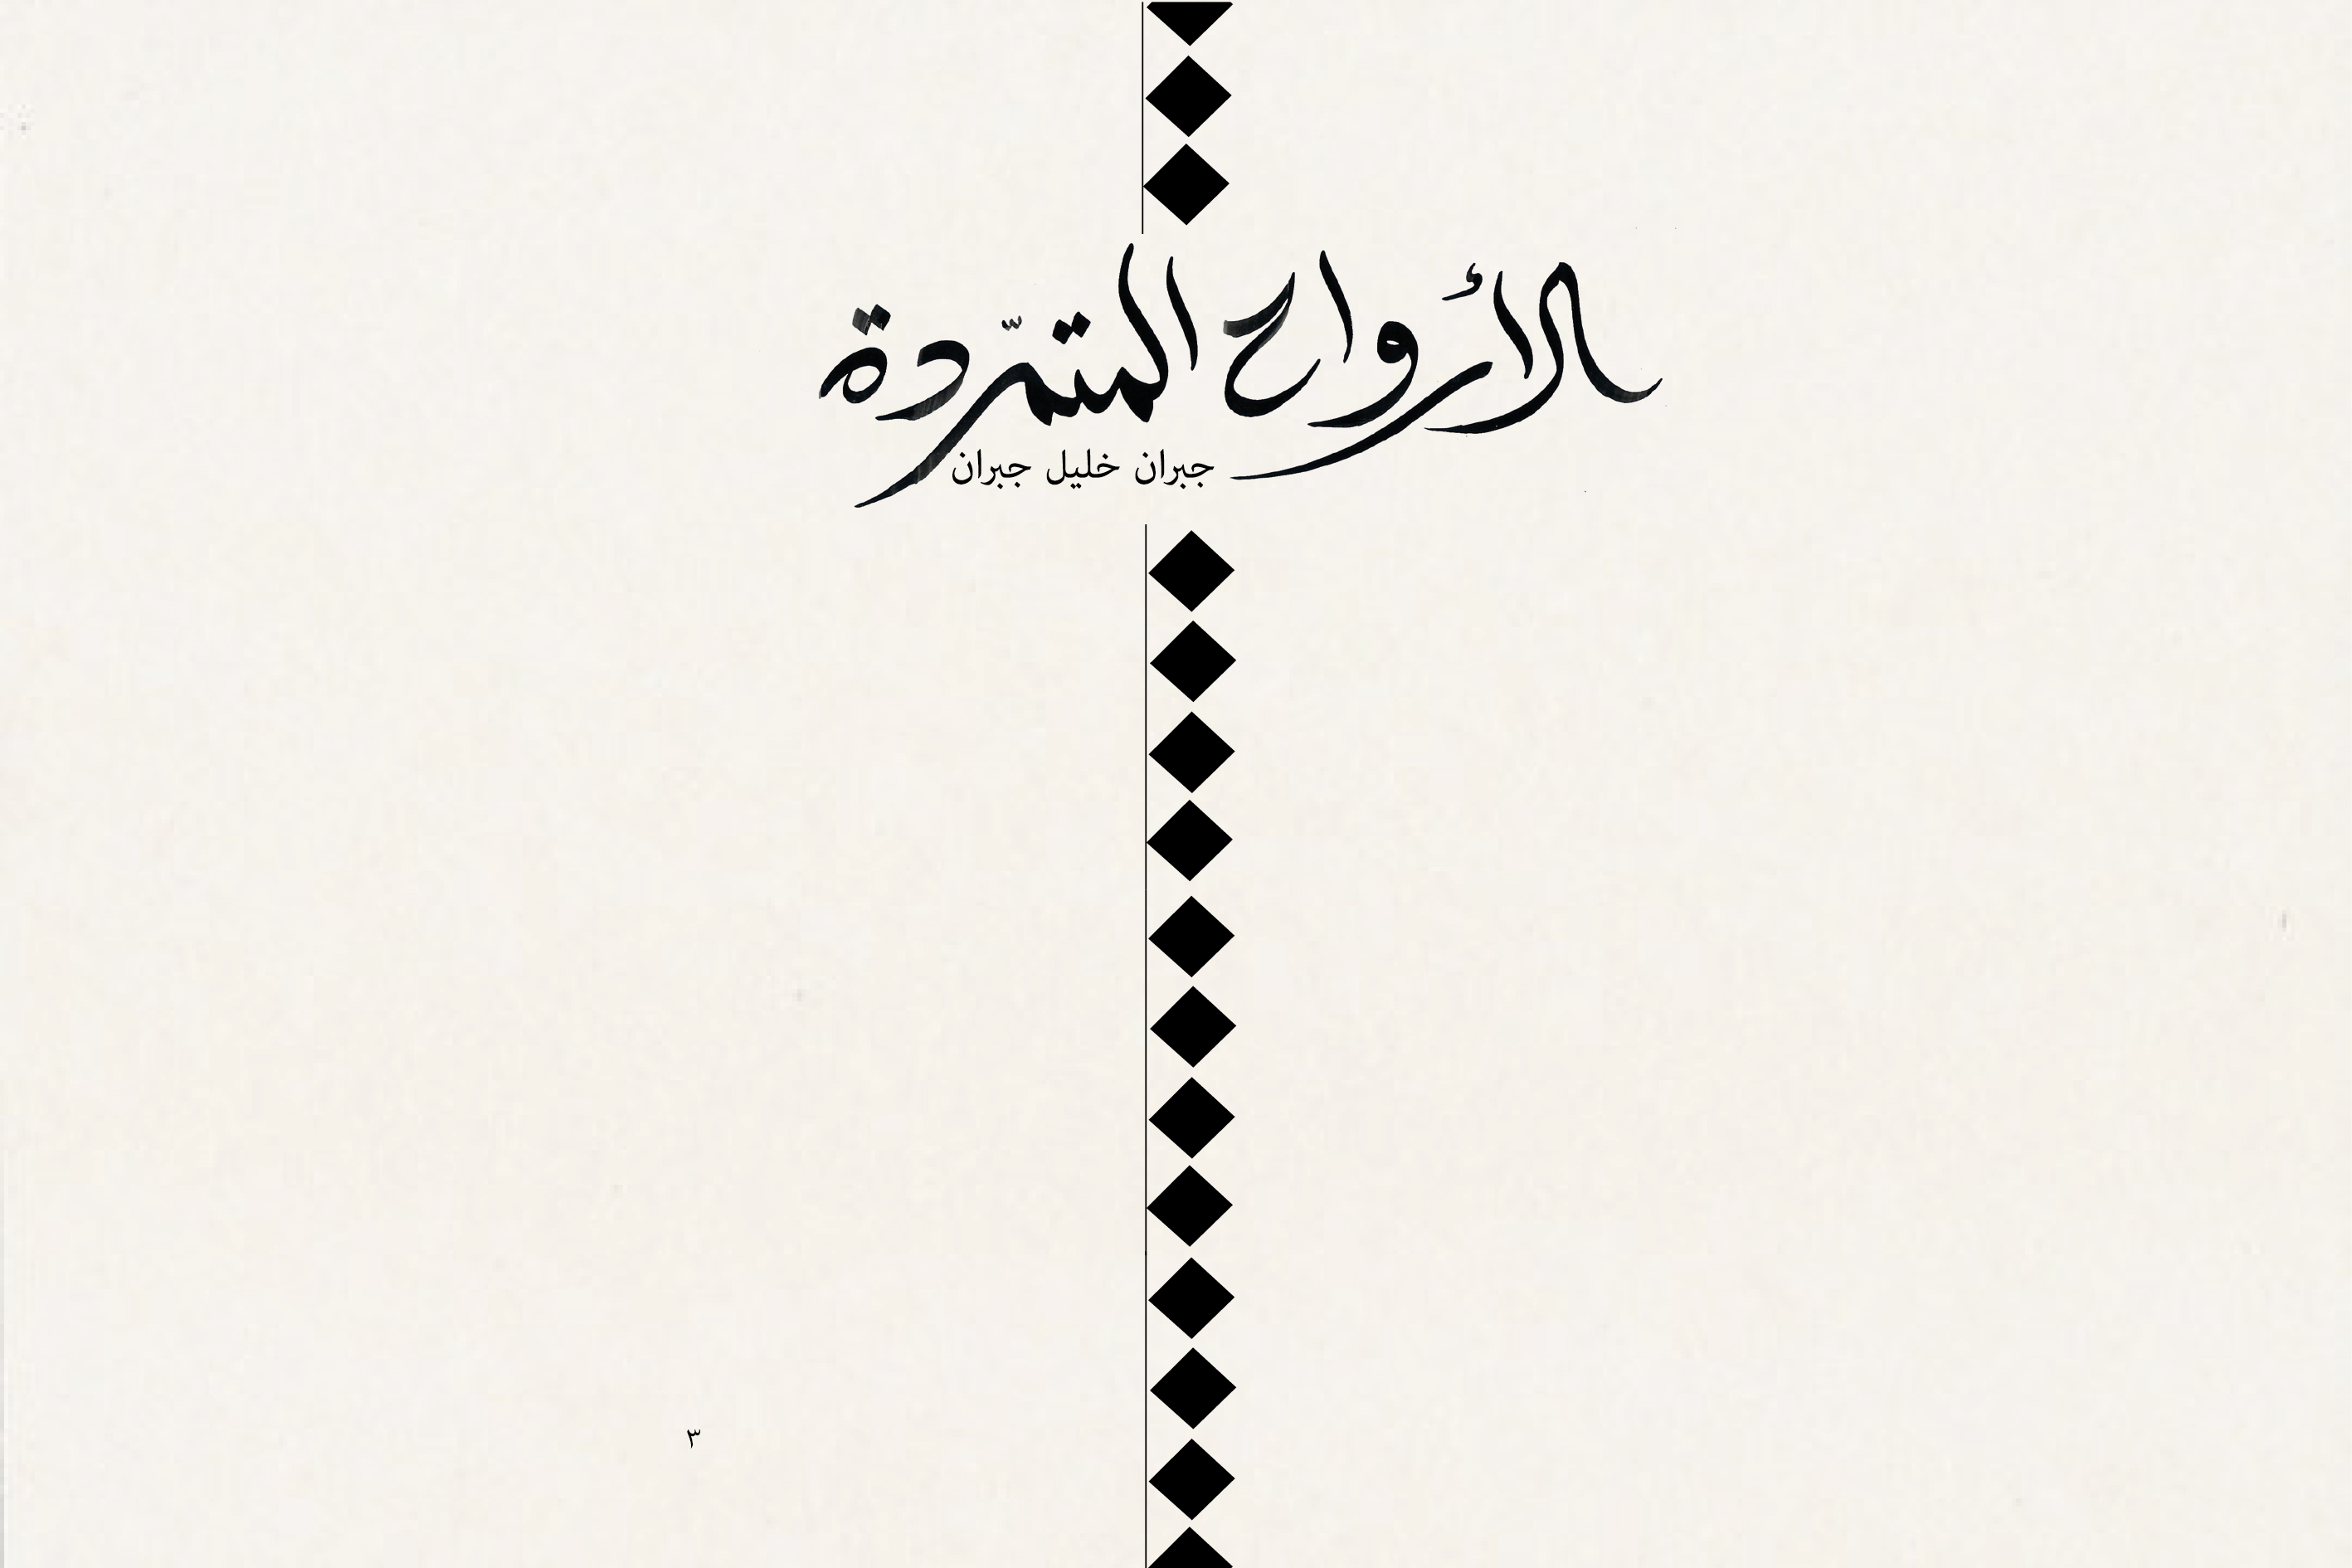 الأرواح المتمرّدة
جبران خليل جبران
٣